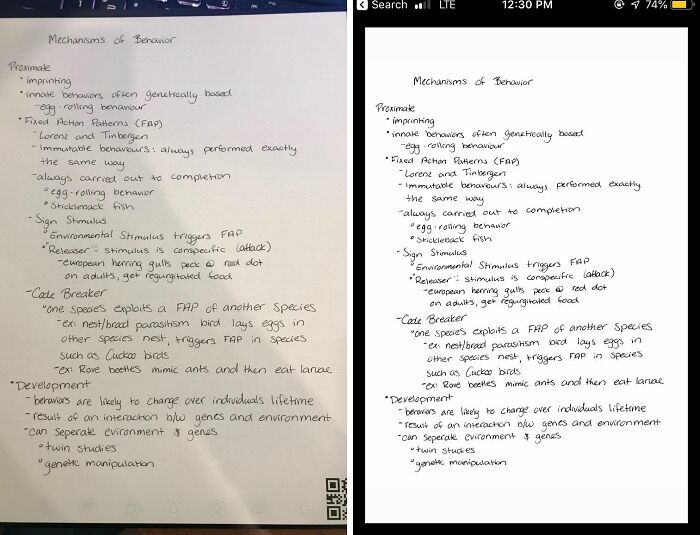 Mechanisms of Behavior
Proximate
• imprinting
• innate behaviors often genetically based
-egg-rolling behaviour
• Fixed Action Patterns (FAP)
- Lorenz and Tinbergen
- Immutable behaviours: always performed exactly
the same way
-always carried out to completion
° egg-rolling behavior
° Stickleback fish
- Sign Stimulus
° Environmental Stimulus triggers FAP
° "Releaser": stimulus is conspecific (attack)
-european herring gulls peck @ red dot
on adults, get regurgitated food
-Code Breaker
° one species exploits a FAP of another species
-ex: nest/brood parasitism bird lays eggs in
other species nest, triggers FAP in species
such as Cuckoo birds
-ex: Rove beetles mimic ants and then eat larvae
• Development
- behaviors are likely to change over individuals lifetime
- result of an interaction b/w genes and environment
-can seperate evironment & genes
° twin studies
° genetic manipulation
Search LTE 12:30 PM 74%
Mechanisms of Behavior
Proximate
• imprinting
• innate behaviors often genetically based
-egg-rolling behaviour
• Fixed Action Patterns (FAP)
- Lorenz and Tinbergen
- Immutable behaviours: always performed exactly
the same way
-always carried out to completion
° egg-rolling behavior
° Stickleback fish
- Sign Stimulus
° Environmental Stimulus triggers FAP
° "Releaser": stimulus is conspecific (attack)
-european herring gulls peck @ red dot
on adults, get regurgitated food
-Code Breaker
° one species exploits a FAP of another species
-ex: nest/brood parasitism bird lays eggs in
other species nest, triggers FAP in species
such as Cuckoo birds
-ex: Rove beetles mimic ants and then eat larvae
• Development
- behaviors are likely to change over individuals lifetime
- result of an interaction b/w genes and environment
-can seperate evironment & genes
° twin studies
° genetic manipulation